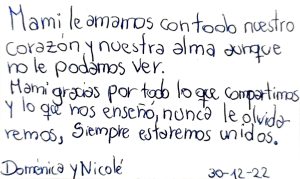 Mami le amamos con todo nuestro
corazón y nuestra alma aunque
no le podamos ver.
Mami gracias por todo lo que compartimos
y lo que nos enseñó, nunca le olvida-
remos, siempre estaremos unidos.
Doménica y Nicolé 30-12-22